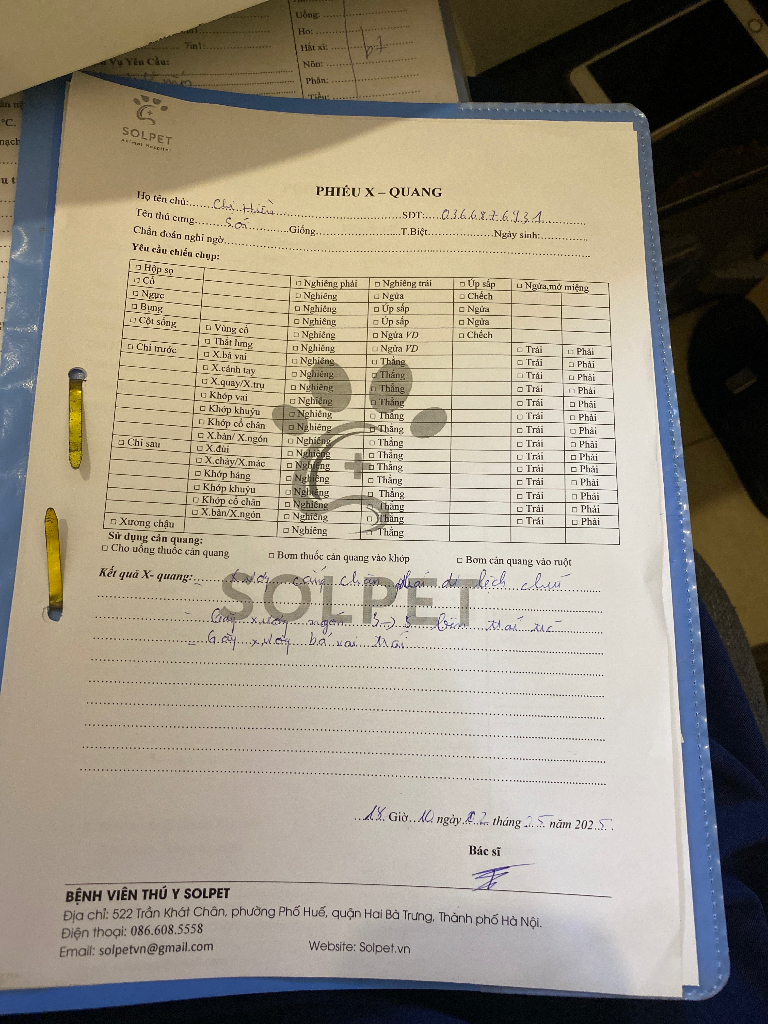 Uống:
Ho:
7in1
Hắt xì:
b7
Vụ Yêu Cầu:
Nôn:
Phân:
Tiểu:
°C.
SOLPET
Animal Hospital
PHIẾU X – QUANG
Họ tên chủ: Chị Hiền SĐT: 0366876931
Tên thú cưng Sói Giống T.Biệt Ngày sinh:
Chẩn đoán nghi ngờ
Yêu cầu chiếu chụp:
□ Hộp sọ □ Nghiêng phải □ Nghiêng trái □ Úp sấp □ Ngửa,mở miệng
□ Cổ □ Nghiêng □ Ngửa □ Chếch
□ Ngực □ Nghiêng □ Úp sấp □ Ngửa
□ Bụng □ Nghiêng □ Úp sấp □ Ngửa
□ Cột sống □ Vùng cổ □ Nghiêng □ Ngửa VD □ Chếch
□ Thắt lưng □ Nghiêng □ Ngửa VD
□ Chi trước □ X.bả vai □ Nghiêng □ Thẳng □ Trái □ Phải
□ X.cánh tay □ Nghiêng □ Thẳng □ Trái □ Phải
□ X.quay/X.trụ □ Nghiêng □ Thẳng □ Trái □ Phải
□ Khớp vai □ Nghiêng □ Thẳng □ Trái □ Phải
□ Khớp khuỷu □ Nghiêng □ Thẳng □ Trái □ Phải
□ Khớp cổ chân □ Nghiêng □ Thẳng □ Trái □ Phải
□ X.bàn/ X.ngón □ Nghiêng □ Thẳng □ Trái □ Phải
□ Chi sau □ X.đùi □ Nghiêng □ Thẳng □ Trái □ Phải
□ X.chày/X.mác □ Nghiêng □ Thẳng □ Trái □ Phải
□ Khớp háng □ Nghiêng □ Thẳng □ Trái □ Phải
□ Khớp khuỷu □ Nghiêng □ Thẳng □ Trái □ Phải
□ Khớp cổ chân □ Nghiêng □ Thẳng □ Trái □ Phải
□ X.bàn/X.ngón □ Nghiêng □ Thẳng □ Trái □ Phải
□ Xương chậu □ Nghiêng □ Thẳng
Sử dụng cản quang:
□ Cho uống thuốc cản quang □ Bơm thuốc cản quang vào khớp □ Bơm cản quang vào ruột
Kết quả X- quang: Xương cẳng chân phải di lệch chữ
SOLPET
- Gãy xương ngón 3-> 5 bên trái
- Gãy xương bả vai trái
18 Giờ 10 ngày 02 tháng 5 năm 2025
Bác sĩ
BỆNH VIÊN THÚ Y SOLPET
Địa chỉ: 522 Trần Khát Chân, phường Phố Huế, quận Hai Bà Trưng, Thành phố Hà Nội.
Điện thoại: 086.608.5558
Email: solpetvn@gmail.com Website: Solpet.vn